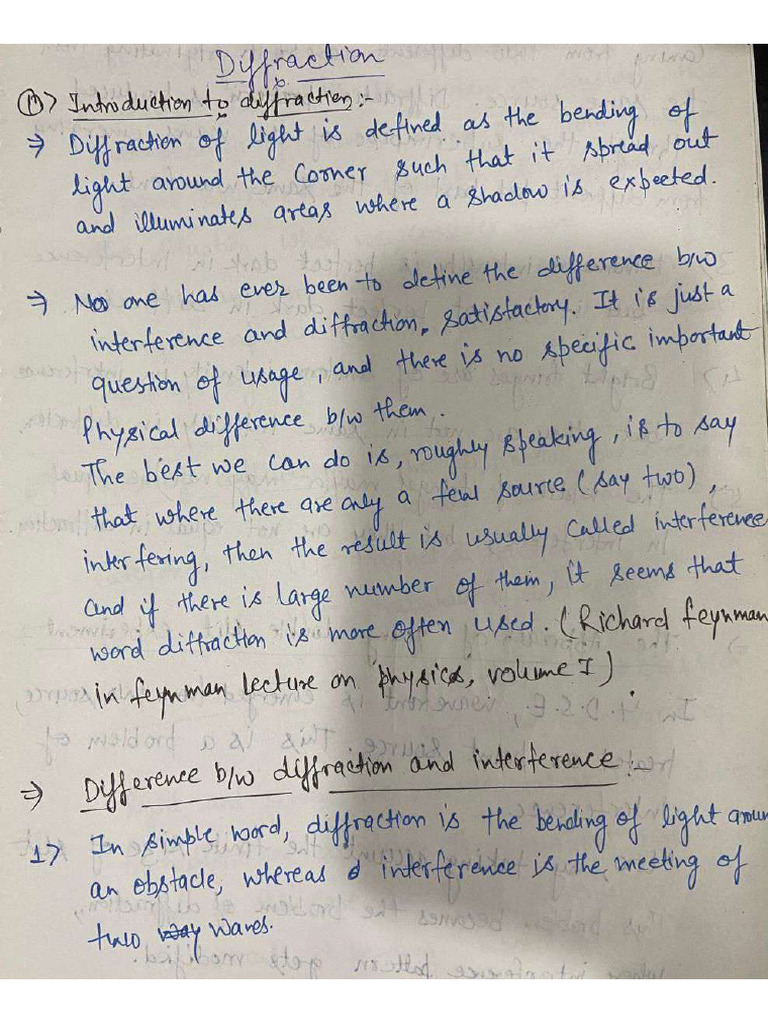 Diffraction
Introduction to diffraction:-
⇒ Diffraction of light is defined as the bending of
light around the corner such that it spread out
and illuminates areas where a shadow is expected.
⇒ No one has ever been to define the difference b/w
interference and diffraction, satisfactory. It is just a
question of usage, and there is no specific important
Physical difference b/w them.
The best we can do is, roughly speaking, is to say
that where there are only a few source (say two),
interfering, then the result is usually called interference
and if there is large number of them, it seems that
word diffraction is more often used. (Richard feynman
in feynman lecture on 'physics', volume I).
⇒ Difference b/w diffraction and interference:-
1.> In simple word, diffraction is the bending of light aroun
an obstacle, whereas interference is the meeting of
two waves.